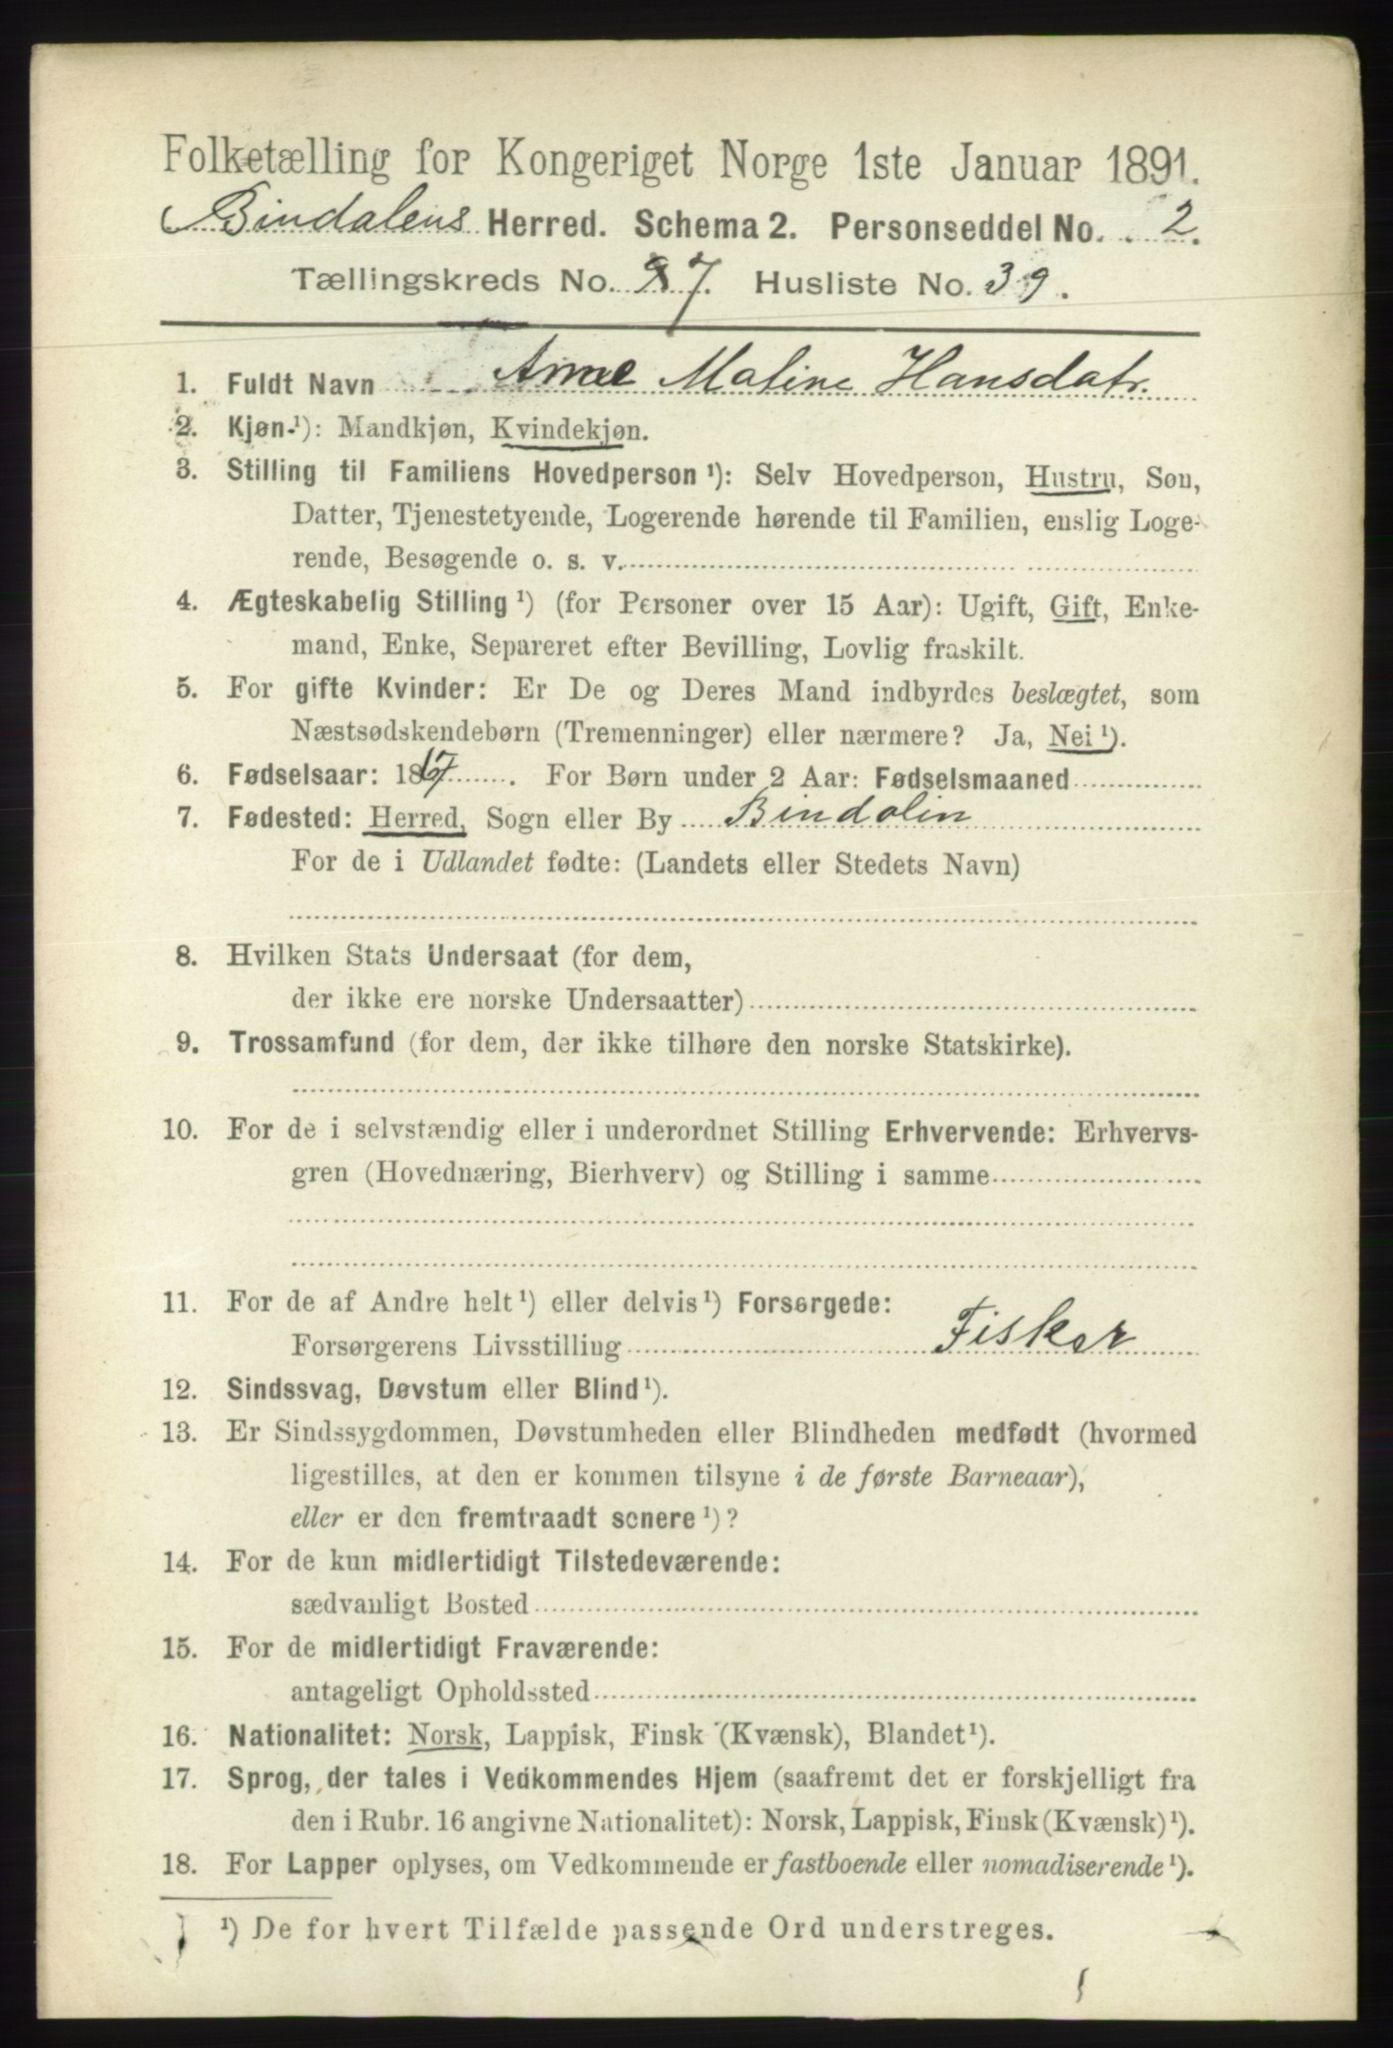 Folketælling for Kongeriget Norge 1ste Januar 1891.
Bindalens Herred. Schema 2. Personseddel No. 2.
Tællingskreds No. 7. Husliste No. 39.
1. Fuldt Navn Anne Maline Hansdatr.
2. Kjøn ¹): Mandkjøn, Kvindekjøn.
3. Stilling til Familiens Hovedperson ¹): Selv Hovedperson, Hustru, Søn,
Datter, Tjenestetyende, Logerende hørende til Familien, enslig Loge-
rende, Besøgende o. s. v.
4. Ægteskabelig Stilling ¹) (for Personer over 15 Aar): Ugift, Gift, Enke-
mand, Enke, Separeret efter Bevilling, Lovlig fraskilt.
5. For gifte Kvinder: Er De og Deres Mand indbyrdes beslægtet, som
Næstsødskendebørn (Tremenninger) eller nærmere? Ja, Nei ¹).
6. Fødselsaar: 1867. For Børn under 2 Aar: Fødselsmaaned
7. Fødested: Herred, Sogn eller By Bindalin
For de i Udlandet fødte: (Landets eller Stedets Navn)
8. Hvilken Stats Undersaat (for dem,
der ikke ere norske Undersaatter)
9. Trossamfund (for dem, der ikke tilhøre den norske Statskirke).
10. For de i selvstændig eller i underordnet Stilling Erhvervende: Erhvervs-
gren (Hovednæring, Bierhverv) og Stilling i samme
11. For de af Andre helt ¹) eller delvis ¹) Forsørgede:
Forsørgerens Livsstilling Fisker
12. Sindssvag, Døvstum eller Blind ¹).
13. Er Sindssygdommen, Døvstumheden eller Blindheden medfødt (hvormed
ligestilles, at den er kommen tilsyne i de første Barneaar),
eller er den fremtraadt senere ¹)?
14. For de kun midlertidigt Tilstedeværende:
sædvanligt Bosted
15. For de midlertidigt Fraværende:
antageligt Opholdssted
16. Nationalitet: Norsk, Lappisk, Finsk (Kvænsk), Blandet ¹).
17. Sprog, der tales i Vedkommendes Hjem (saafremt det er forskjelligt fra
den i Rubr. 16 angivne Nationalitet): Norsk, Lappisk, Finsk (Kvænsk) ¹).
18. For Lapper oplyses, om Vedkommende er fastboende eller nomadiserende ¹).
¹) De for hvert Tilfælde passende Ord understreges.